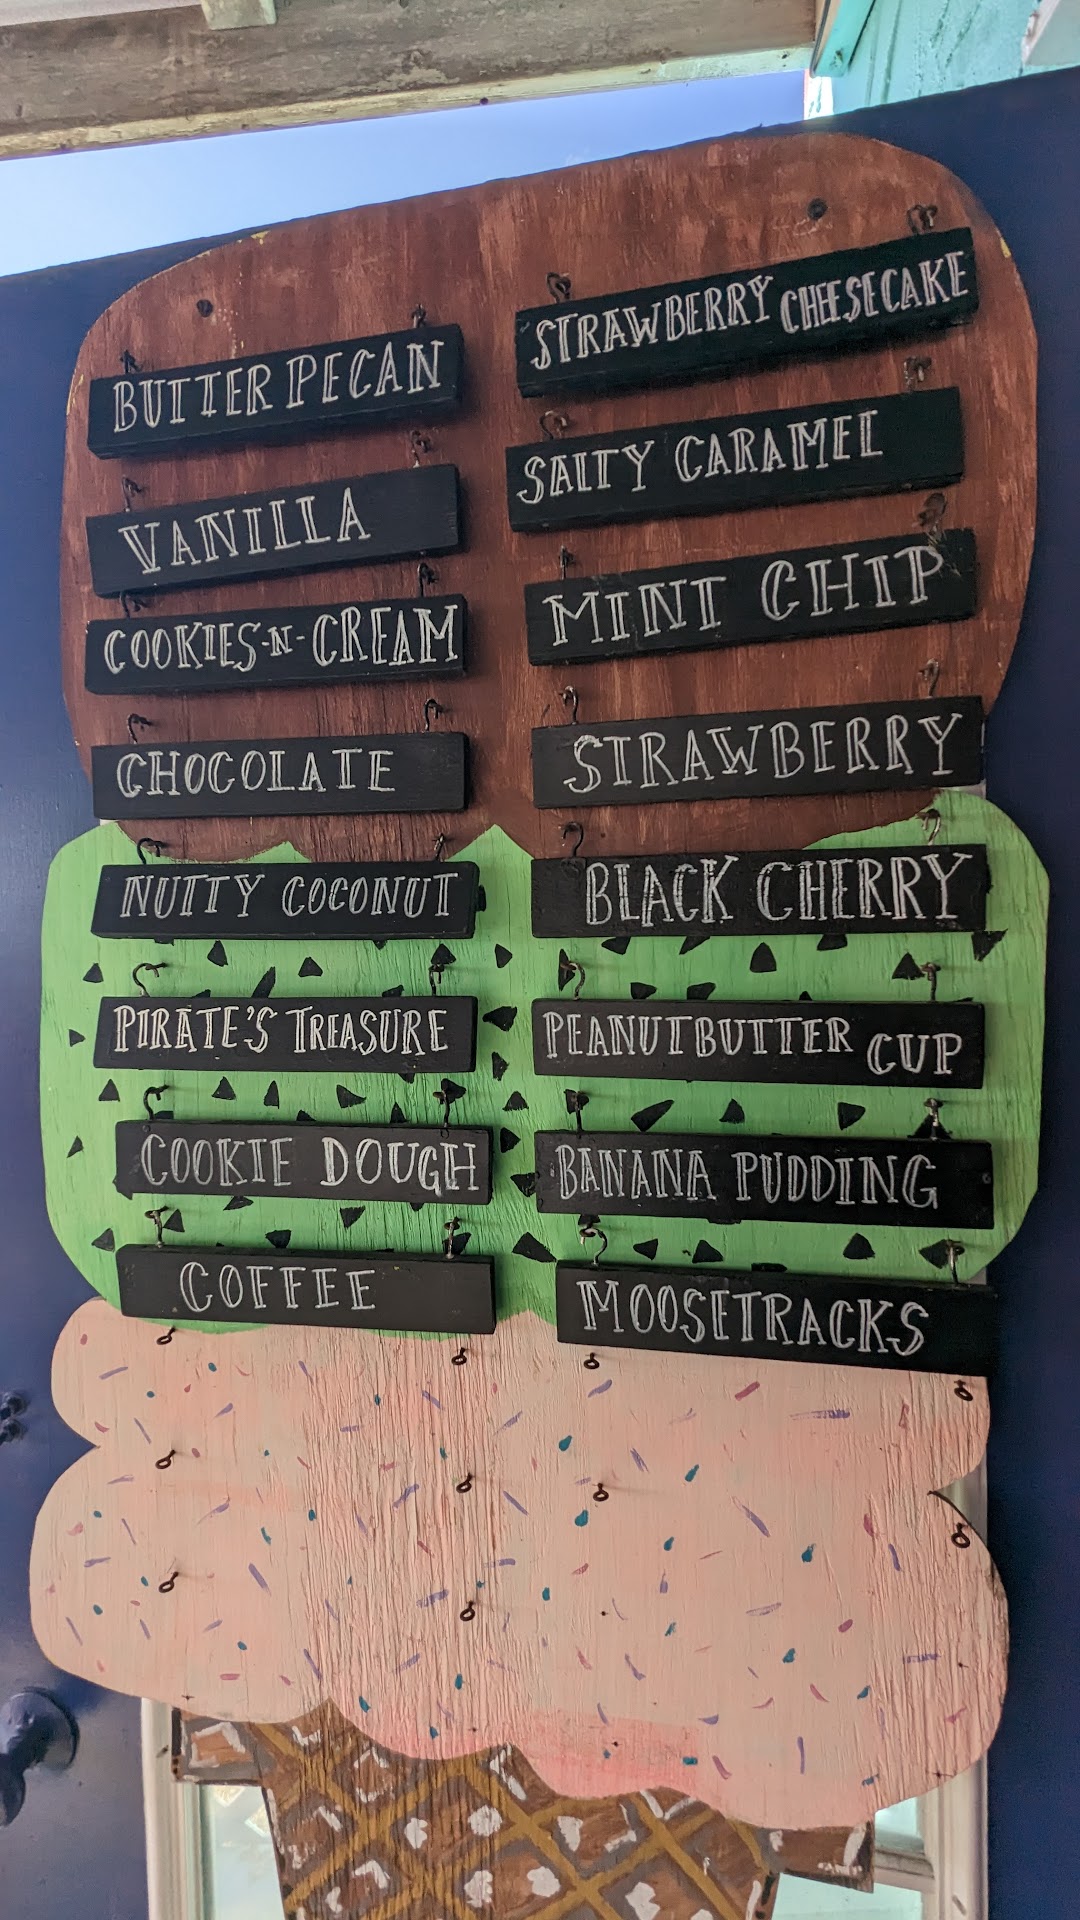 BUTTER PECAN
VANILLA
COOKIES-N-CREAM
CHOCOLATE
NUTTY COCONUT
PIRATE'S TREASURE
COOKIE DOUGH
COFFEE
STRAWBERRY CHEESECAKE
SALTY CARAMEL
MINT CHIP
STRAWBERRY
BLACK CHERRY
PEANUTBUTTER CUP
BANANA PUDDING
MOOSETRACKS